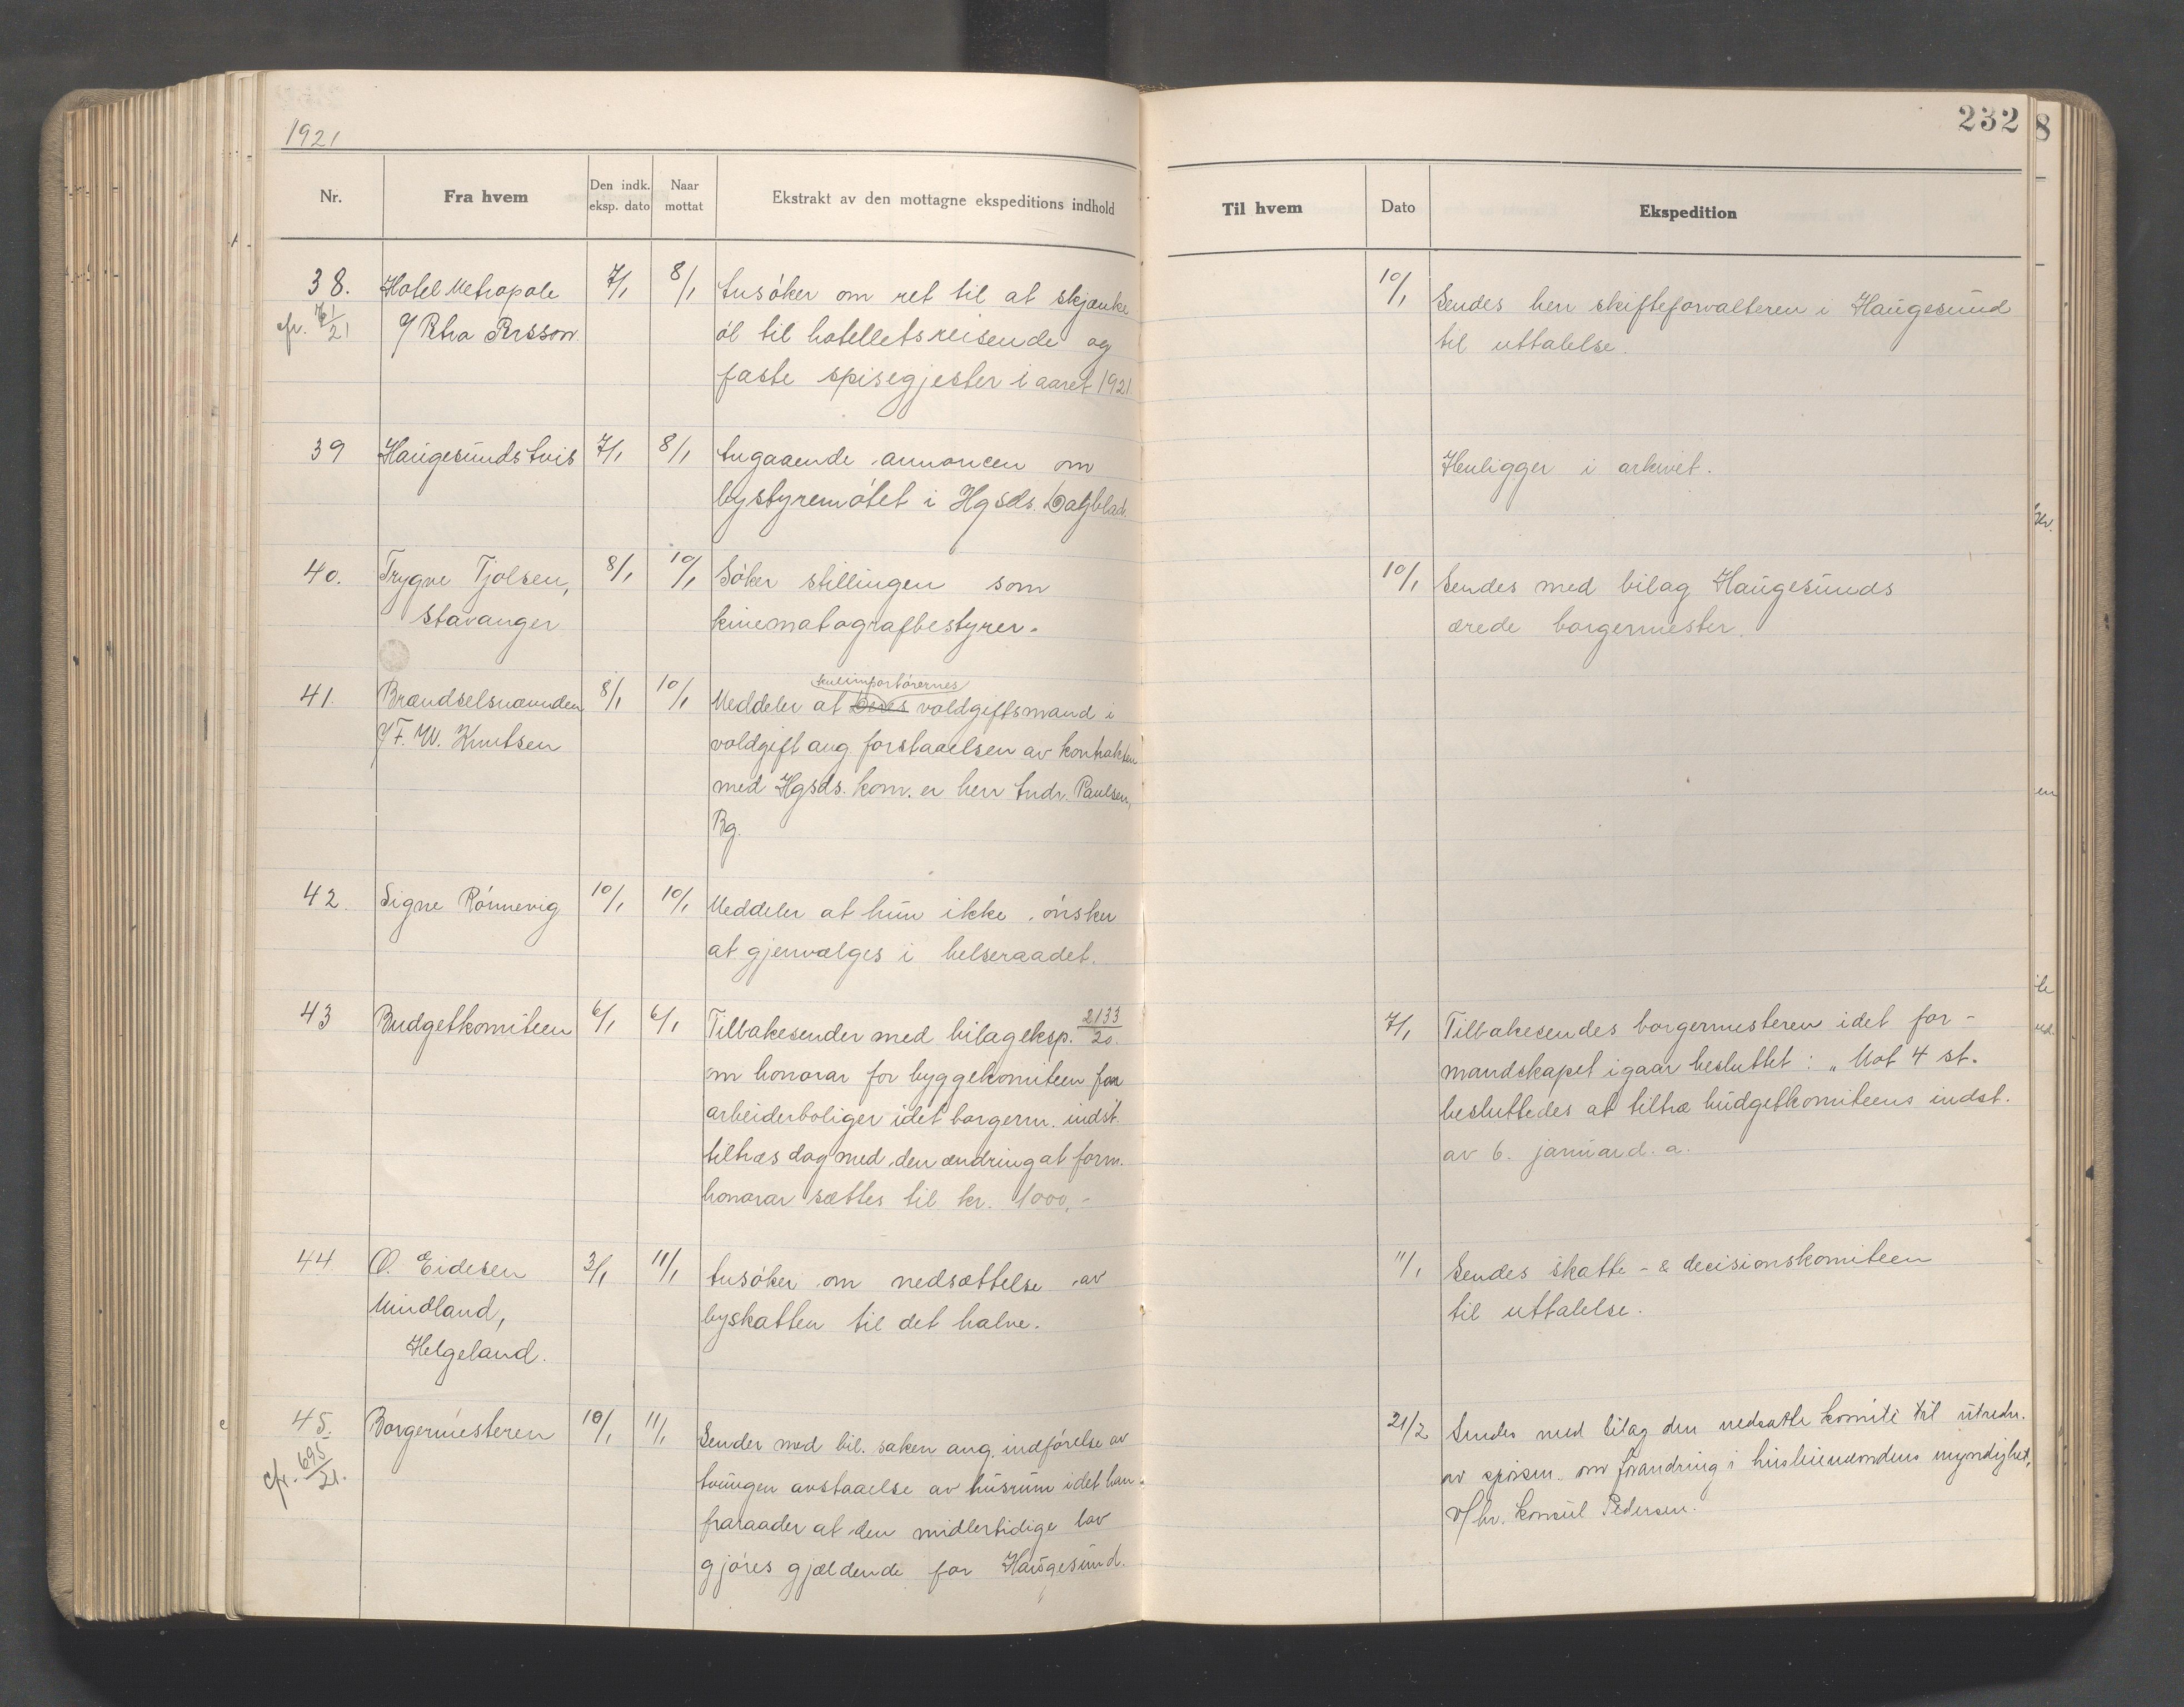 1921
232
8
Nr.
Fra hvem
Den indk. eksp. dato
Naar mottat
Ekstrakt av den mottagne ekspeditions indhold
Til hvem
Dato
Ekspedition
38. Hotel Metropole 7/1 8/1 Ansöker om ret til at skjænke
cfr. /21 v/ Petra Persson. öl til hotellets reisende og
faste spisegjester i aaret 1921
10/1 Sendes herr skifteforvalteren i Haugesund
til uttalelse.
39 Haugesunds Avis 7/1 8/1 Angaaende annoncen om
bystyremötet i Hgsds. Dagblad.
Henligger i arkivet.
40. Trygve Tjölsen, 8/1 10/1 Söker stillingen som
Stavanger kinematografbestyrer.
10/1 Sendes med bilag Haugesunds
ærede borgermester.
kulimportörernes
41. Brændselsnævnden 8/1 10/1 Meddeler at deres voldgiftsmand i
v/ F. W. Knutsen voldgift ang. forstaaelsen av kontrakten
med Hgsds. kom. er herr Andr. Paulsen,
Bg.
42. Signe Rönnevig 10/1 10/1 Meddeler at hun ikke önsker
at gjenvælges i helseraadet.
43 Budgetkomiteen 6/1 6/1 Tilbakesender med bilag eksp. 2133/20.
om honorar for byggekomiteen for
arbeiderboliger idet borgerm. indst.
tiltræs dog med den ændring at form.
honorar sættes til kr. 1000,-
7/1 Tilbakesendes borgermesteren idet for-
mandskapet igaar besluttet: „Mot 4 st.
besluttedes at tiltræ budgetkomiteens indst.
av 6. januar d. a.
44 O. Eidesen 3/1 11/1 Ansöker om nedsættelse av
Mindland, byskatten til det halve.
Helgeland.
11/1 Sendes skatte- & decisionskomiteen
til uttalelse.
45. Borgermesteren 10/1 11/1 Sender med bil. saken ang. indförelse av
cfr. 695/21. tvungen avstaaelse av husrum idet han
fraraader at den midlertidige lov
gjöres gjældende for Haugesund.
21/2 Sendes med bilag den nedsatte komité til utredn.
av spörsm. om forandring i husleienævndens myndighet,
v/ hr. konsul Pedersen.